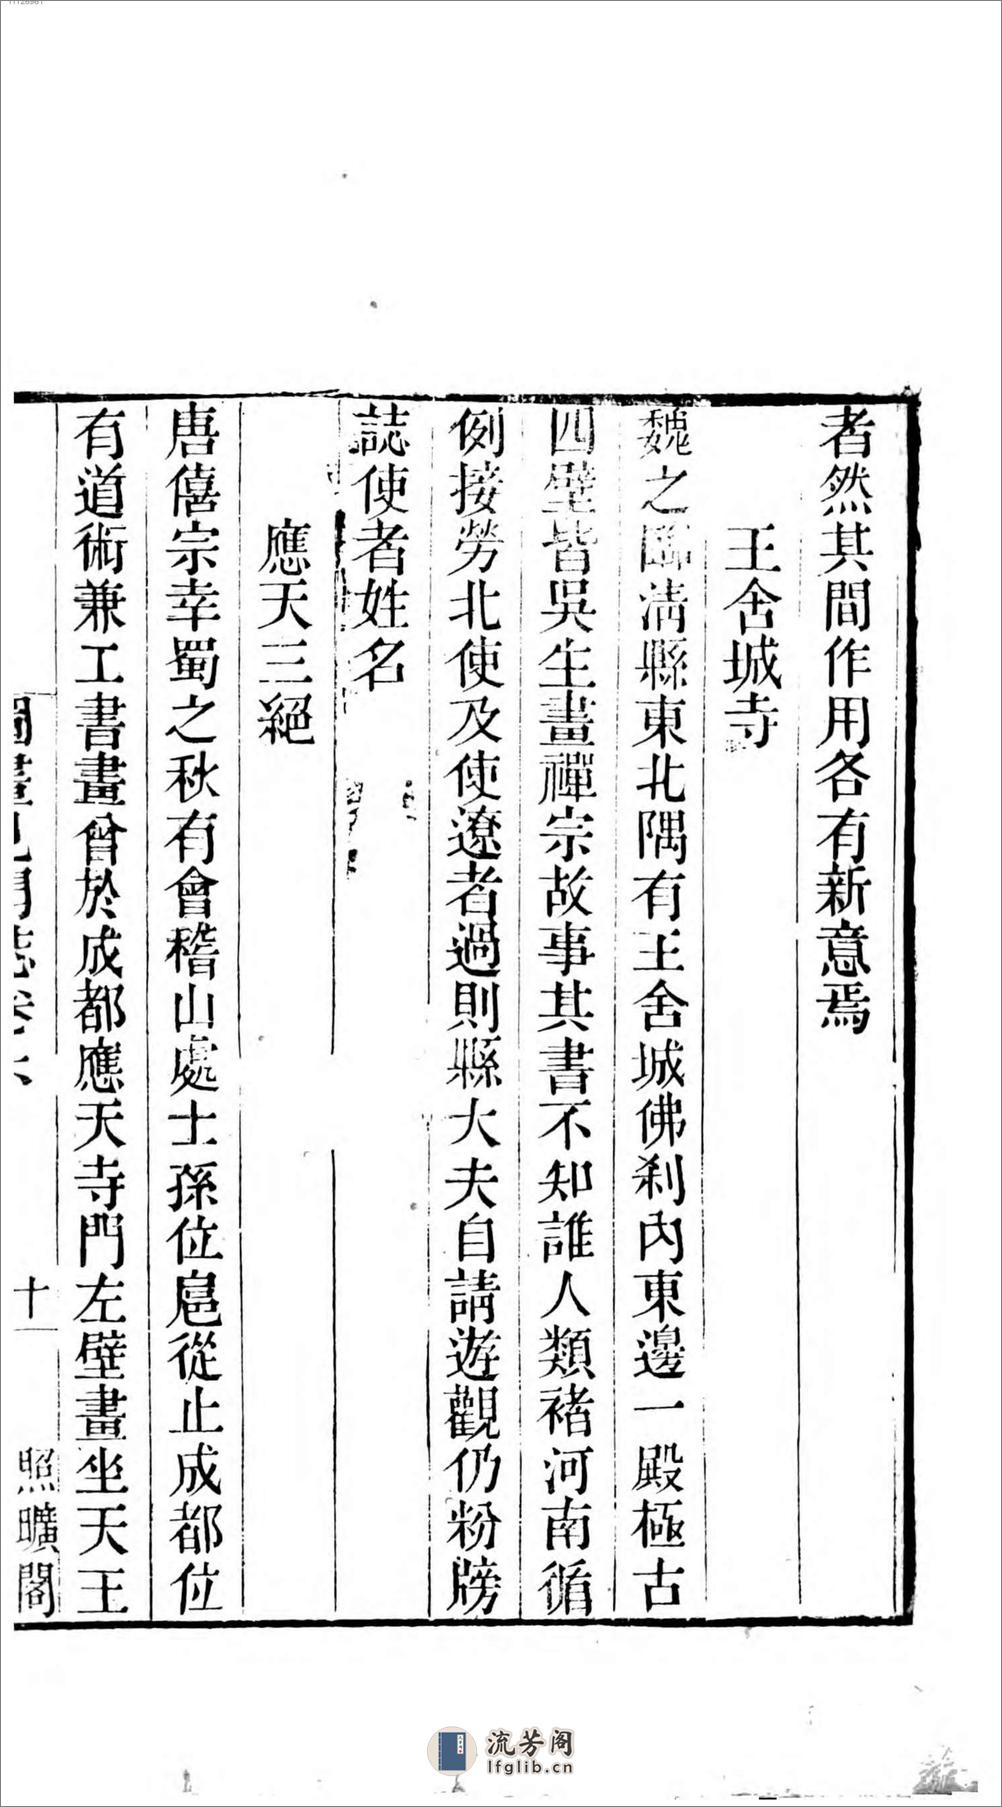 11126961
者然其間作用各有新意焉
王舍城寺
魏之臨清縣東北隅有王舍城佛刹內東邊一殿極古
四壁皆吳生畫禪宗故事其書不知誰人類褚河南循
例接勞北使及使遼者過則縣大夫自請遊觀仍粉牓
誌使者姓名
應天三絕
唐僖宗幸蜀之秋有會稽山處士孫位扈從止成都位
有道術兼工書畫曾於成都應天寺門左壁畫坐天王
圖畫見聞誌卷六
十一
照曠閣
流芳阁
lfglib.cn